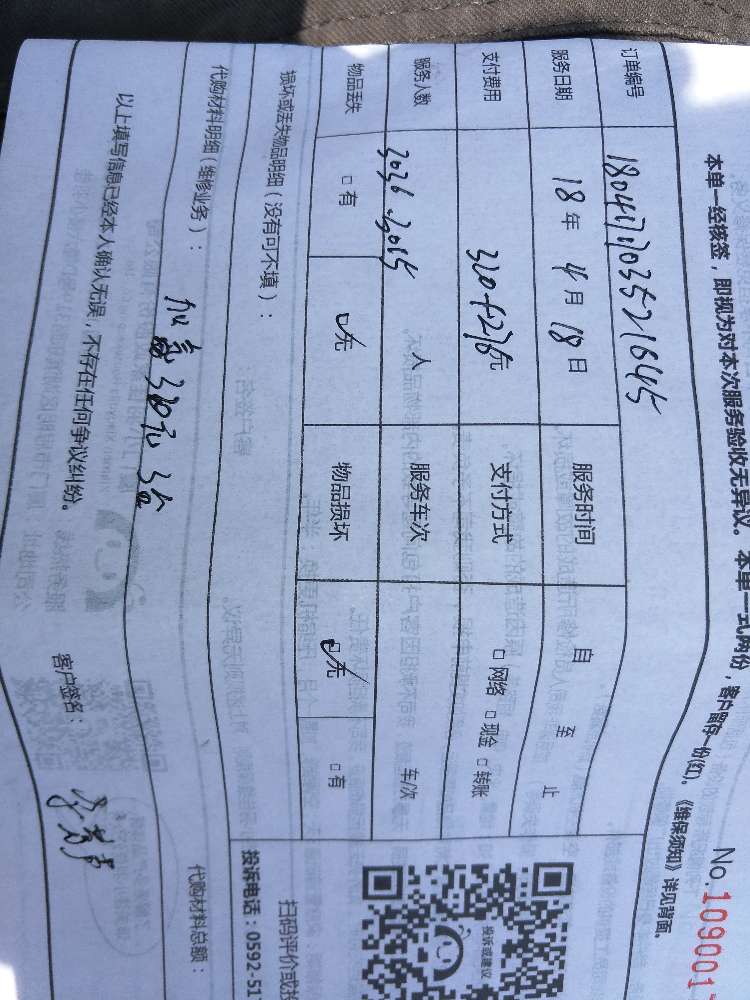 No.109001
本单一经核签，即视为对本次服务验收无异议。本单一式两份，客户留存一份(红)。《维保须知》详见背面。
订单编号
服务日期 18年 4月 18日 服务时间 自 至 止
支付费用 320+278元 支付方式 □ 网络 □ 现金 □ 转账
服务人数 人 服务车次 车/次
物品丢失 □ 有 □无 物品损坏 □无 □ 有
损坏或丢失物品明细（没有可不填）：
代购材料明细（维修业务）：
代购材料总额：
以上填写信息已经本人确认无误，不存在任何争议纠纷。
客户签名：
投诉或建议
扫码评价或投
投诉电话：0592-51